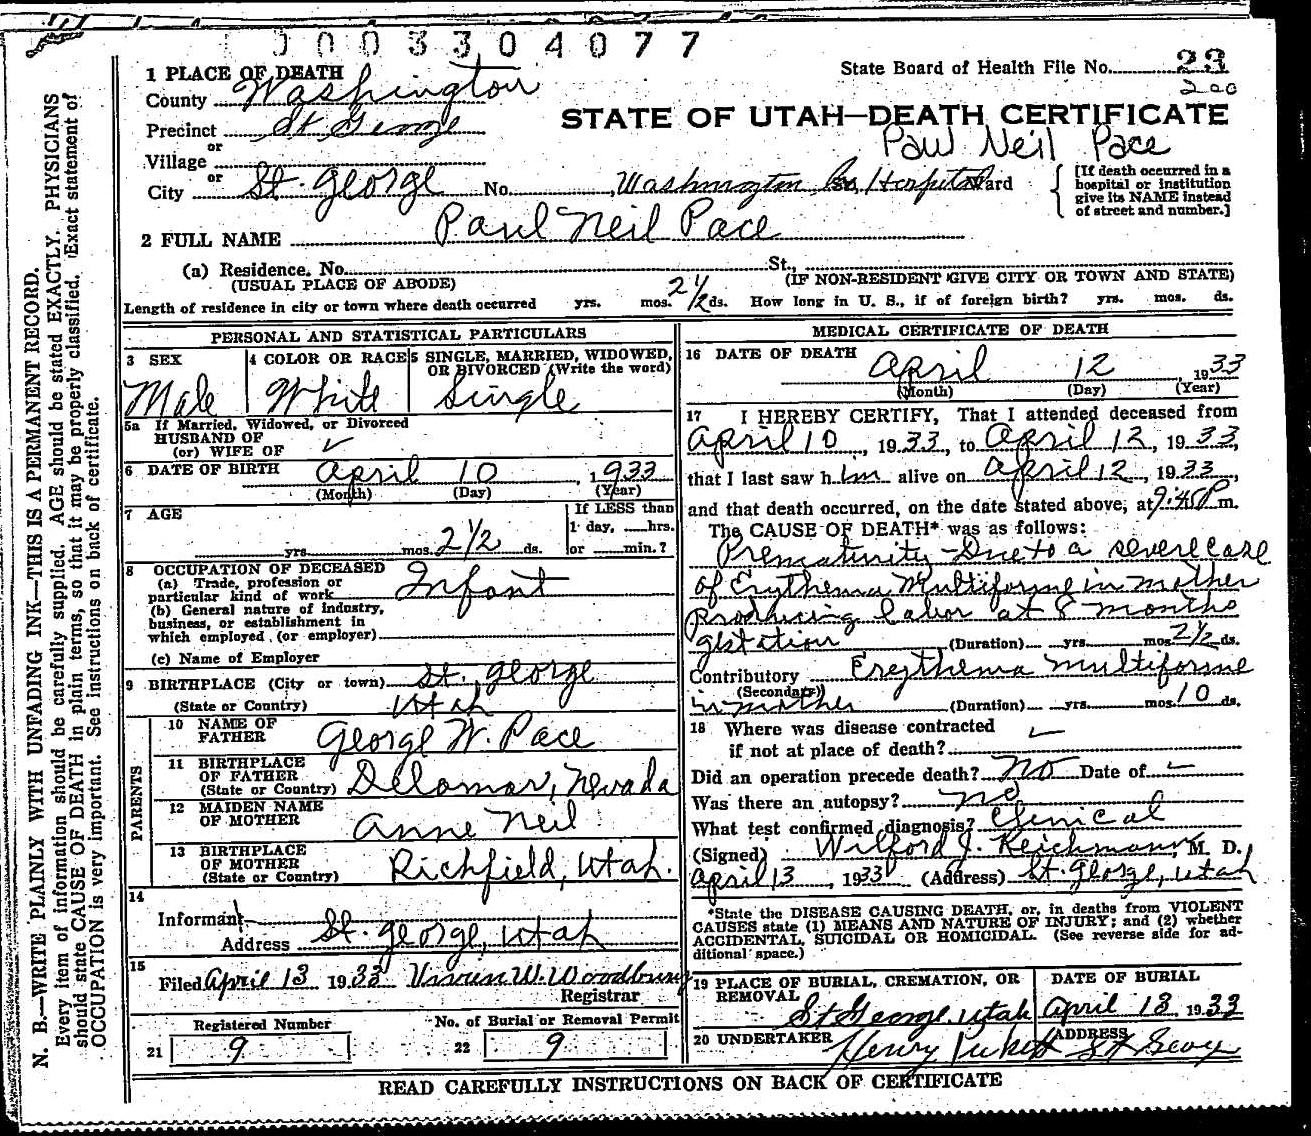 0003304077
1 PLACE OF DEATH
State Board of Health File No. 23
200
County Washington
STATE OF UTAH—DEATH CERTIFICATE
Precinct St George
Paul Neil Pace
or
Village
or
City St. George No. Washington Co. Hospital Ward
[If death occurred in a
hospital or institution
give its NAME instead
of street and number.]
2 FULL NAME Paul Neil Pace
(a) Residence. No. St.,
(USUAL PLACE OF ABODE) (IF NON-RESIDENT GIVE CITY OR TOWN AND STATE)
Length of residence in city or town where death occurred yrs. mos. 2 1/2 ds. How long in U. S., if of foreign birth? yrs. mos. ds.
PERSONAL AND STATISTICAL PARTICULARS
3 SEX 4 COLOR OR RACE 5 SINGLE, MARRIED, WIDOWED,
OR DIVORCED (Write the word)
Male White Single
5a If Married, Widowed, or Divorced
HUSBAND OF
(or) WIFE OF
6 DATE OF BIRTH April 10, 1933
(Month) (Day) (Year)
7 AGE If LESS than
1 day, hrs.
yrs. mos. 2 1/2 ds. or min.?
8 OCCUPATION OF DECEASED
(a) Trade, profession or
particular kind of work Infant
(b) General nature of industry,
business, or establishment in
which employed (or employer)
(c) Name of Employer
9 BIRTHPLACE (City or town) St. George
(State or Country) Utah
PARENTS
10 NAME OF
FATHER George W. Pace
11 BIRTHPLACE
OF FATHER
(State or Country) Delamar, Nevada
12 MAIDEN NAME
OF MOTHER Anne Neil
13 BIRTHPLACE
OF MOTHER
(State or Country) Richfield, Utah.
14
Informant
Address St. George, Utah
15
Filed April 13 1933 Vivian W. Woodbury
Registrar
Registered Number No. of Burial or Removal Permit
21 9 22 9
MEDICAL CERTIFICATE OF DEATH
16 DATE OF DEATH April 12, 1933
(Month) (Day) (Year)
17 I HEREBY CERTIFY, That I attended deceased from
April 10, 1933, to April 12, 1933,
that I last saw him alive on April 12, 1933,
and that death occurred, on the date stated above, at 9:45 P m.
The CAUSE OF DEATH* was as follows:
Prematurity - Due to a severe case
of Erythema Multiforme in mother
producing labor at 8 months
gstation (Duration) yrs. mos. 2 1/2 ds.
Contributory Erythema multiforme
(Secondary)
in mother (Duration) yrs. mos. 10 ds.
18 Where was disease contracted
if not at place of death?
Did an operation precede death? No Date of
Was there an autopsy? no
What test confirmed diagnosis? Clinical
(Signed) Wilford J. Reichmann, M. D.
April 13, 1933 (Address) St. George, Utah
*State the DISEASE CAUSING DEATH, or, in deaths from VIOLENT
CAUSES state (1) MEANS AND NATURE OF INJURY; and (2) whether
ACCIDENTAL, SUICIDAL OR HOMICIDAL. (See reverse side for ad-
ditional space.)
19 PLACE OF BURIAL, CREMATION, OR
REMOVAL
St George, Utah
DATE OF BURIAL
April 13, 1933
20 UNDERTAKER Henry Pickett ADDRESS St George
READ CAREFULLY INSTRUCTIONS ON BACK OF CERTIFICATE
N. B.—WRITE PLAINLY WITH UNFADING INK—THIS IS A PERMANENT RECORD.
Every item of information should be carefully supplied. AGE should be stated EXACTLY. PHYSICIANS
should state CAUSE OF DEATH in plain terms, so that it may be properly classified. Exact statement of
OCCUPATION is very important. See Instructions on back of certificate.